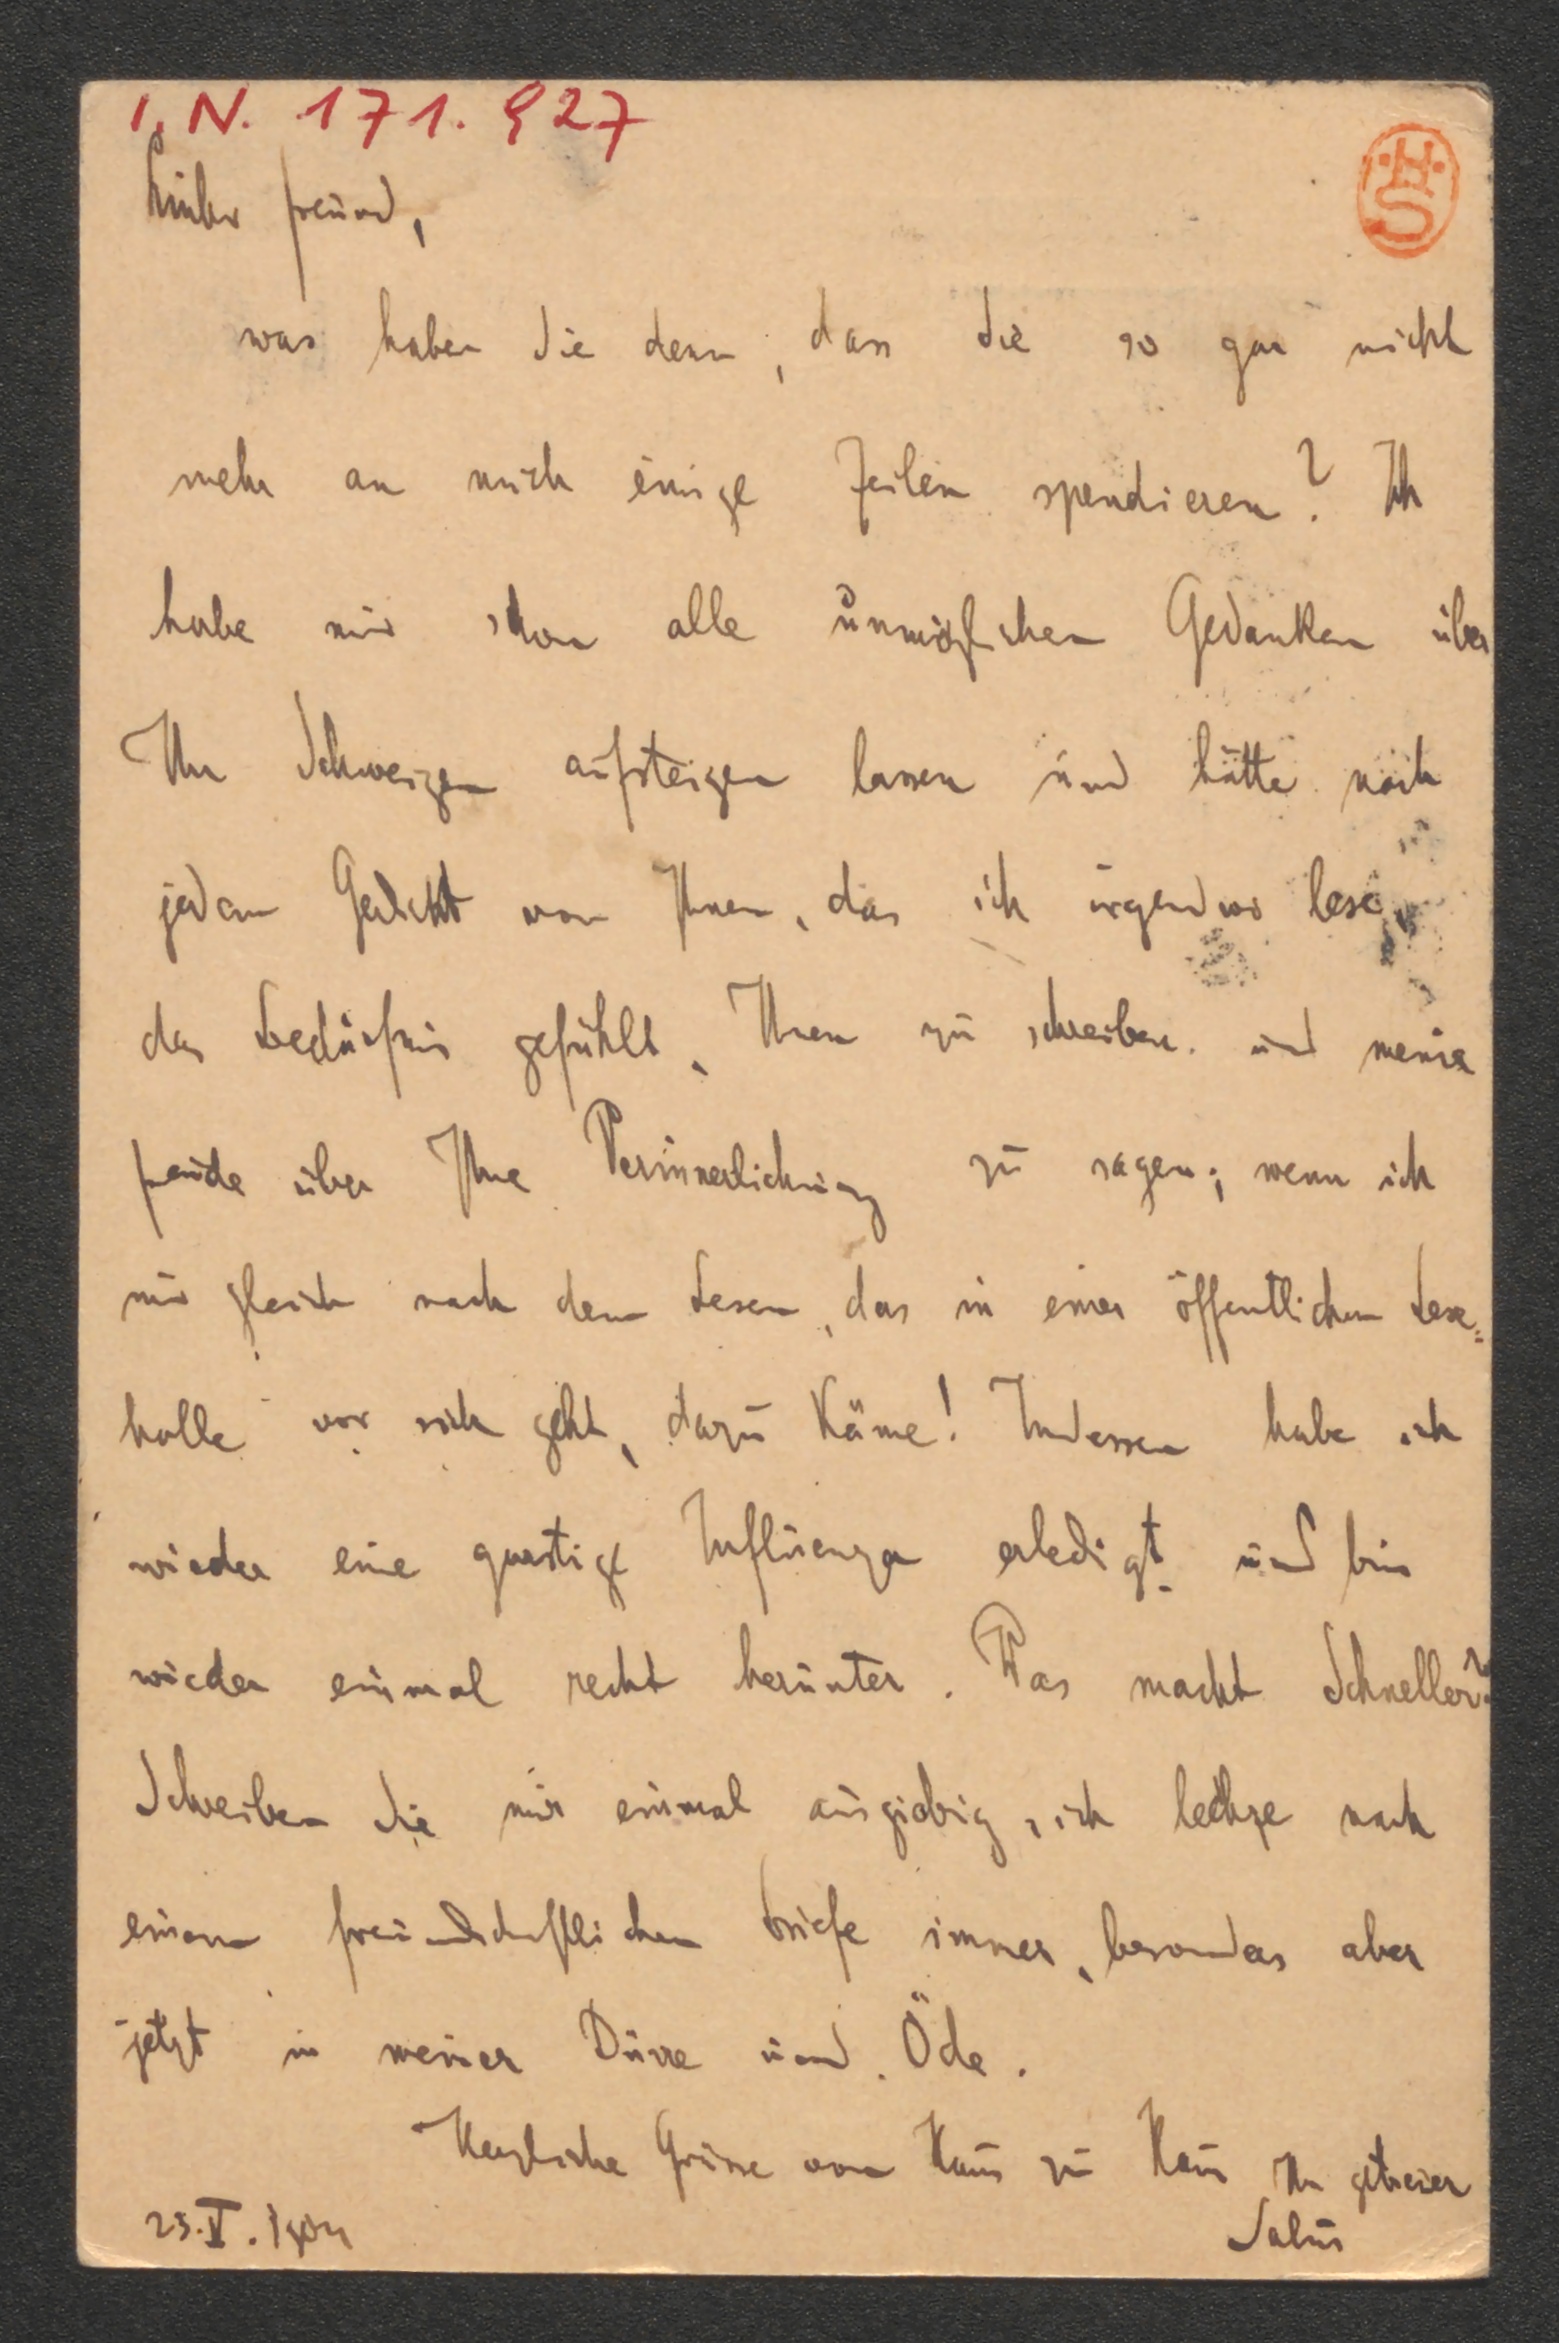 I. N. 171.927
H.
S
Lieber Freund,
was haben Sie denn, dass Sie so gar nicht
mehr an mich einige Zeilen spendieren? Ich
habe mir schon alle unmöglichen Gedanken über
Ihr Schweigen aufsteigen lassen und hätte nach
jedem Gedicht von Ihnen, das ich irgendwo lese,
das Bedürfnis gefühlt, Ihnen zu schreiben und meine
Freude über Ihre Verinnerlichung zu sagen; wenn ich
nur gleich nach dem Lesen, das in einer öffentlichen Lese-
halle vor sich geht, dazu käme! Indessen habe ich
wieder eine garstige Influenza erledigt und bin
wieder einmal recht herunter. Was macht Schneller?
Schreiben Sie mir einmal ausgiebig, ich lechze nach
einem freundschaftlichen Briefe immer, besonders aber
jetzt in meiner Dürre und Öde.
Herzliche Grüsse von Haus zu Haus Ihr getreuer
Salus
23.V.